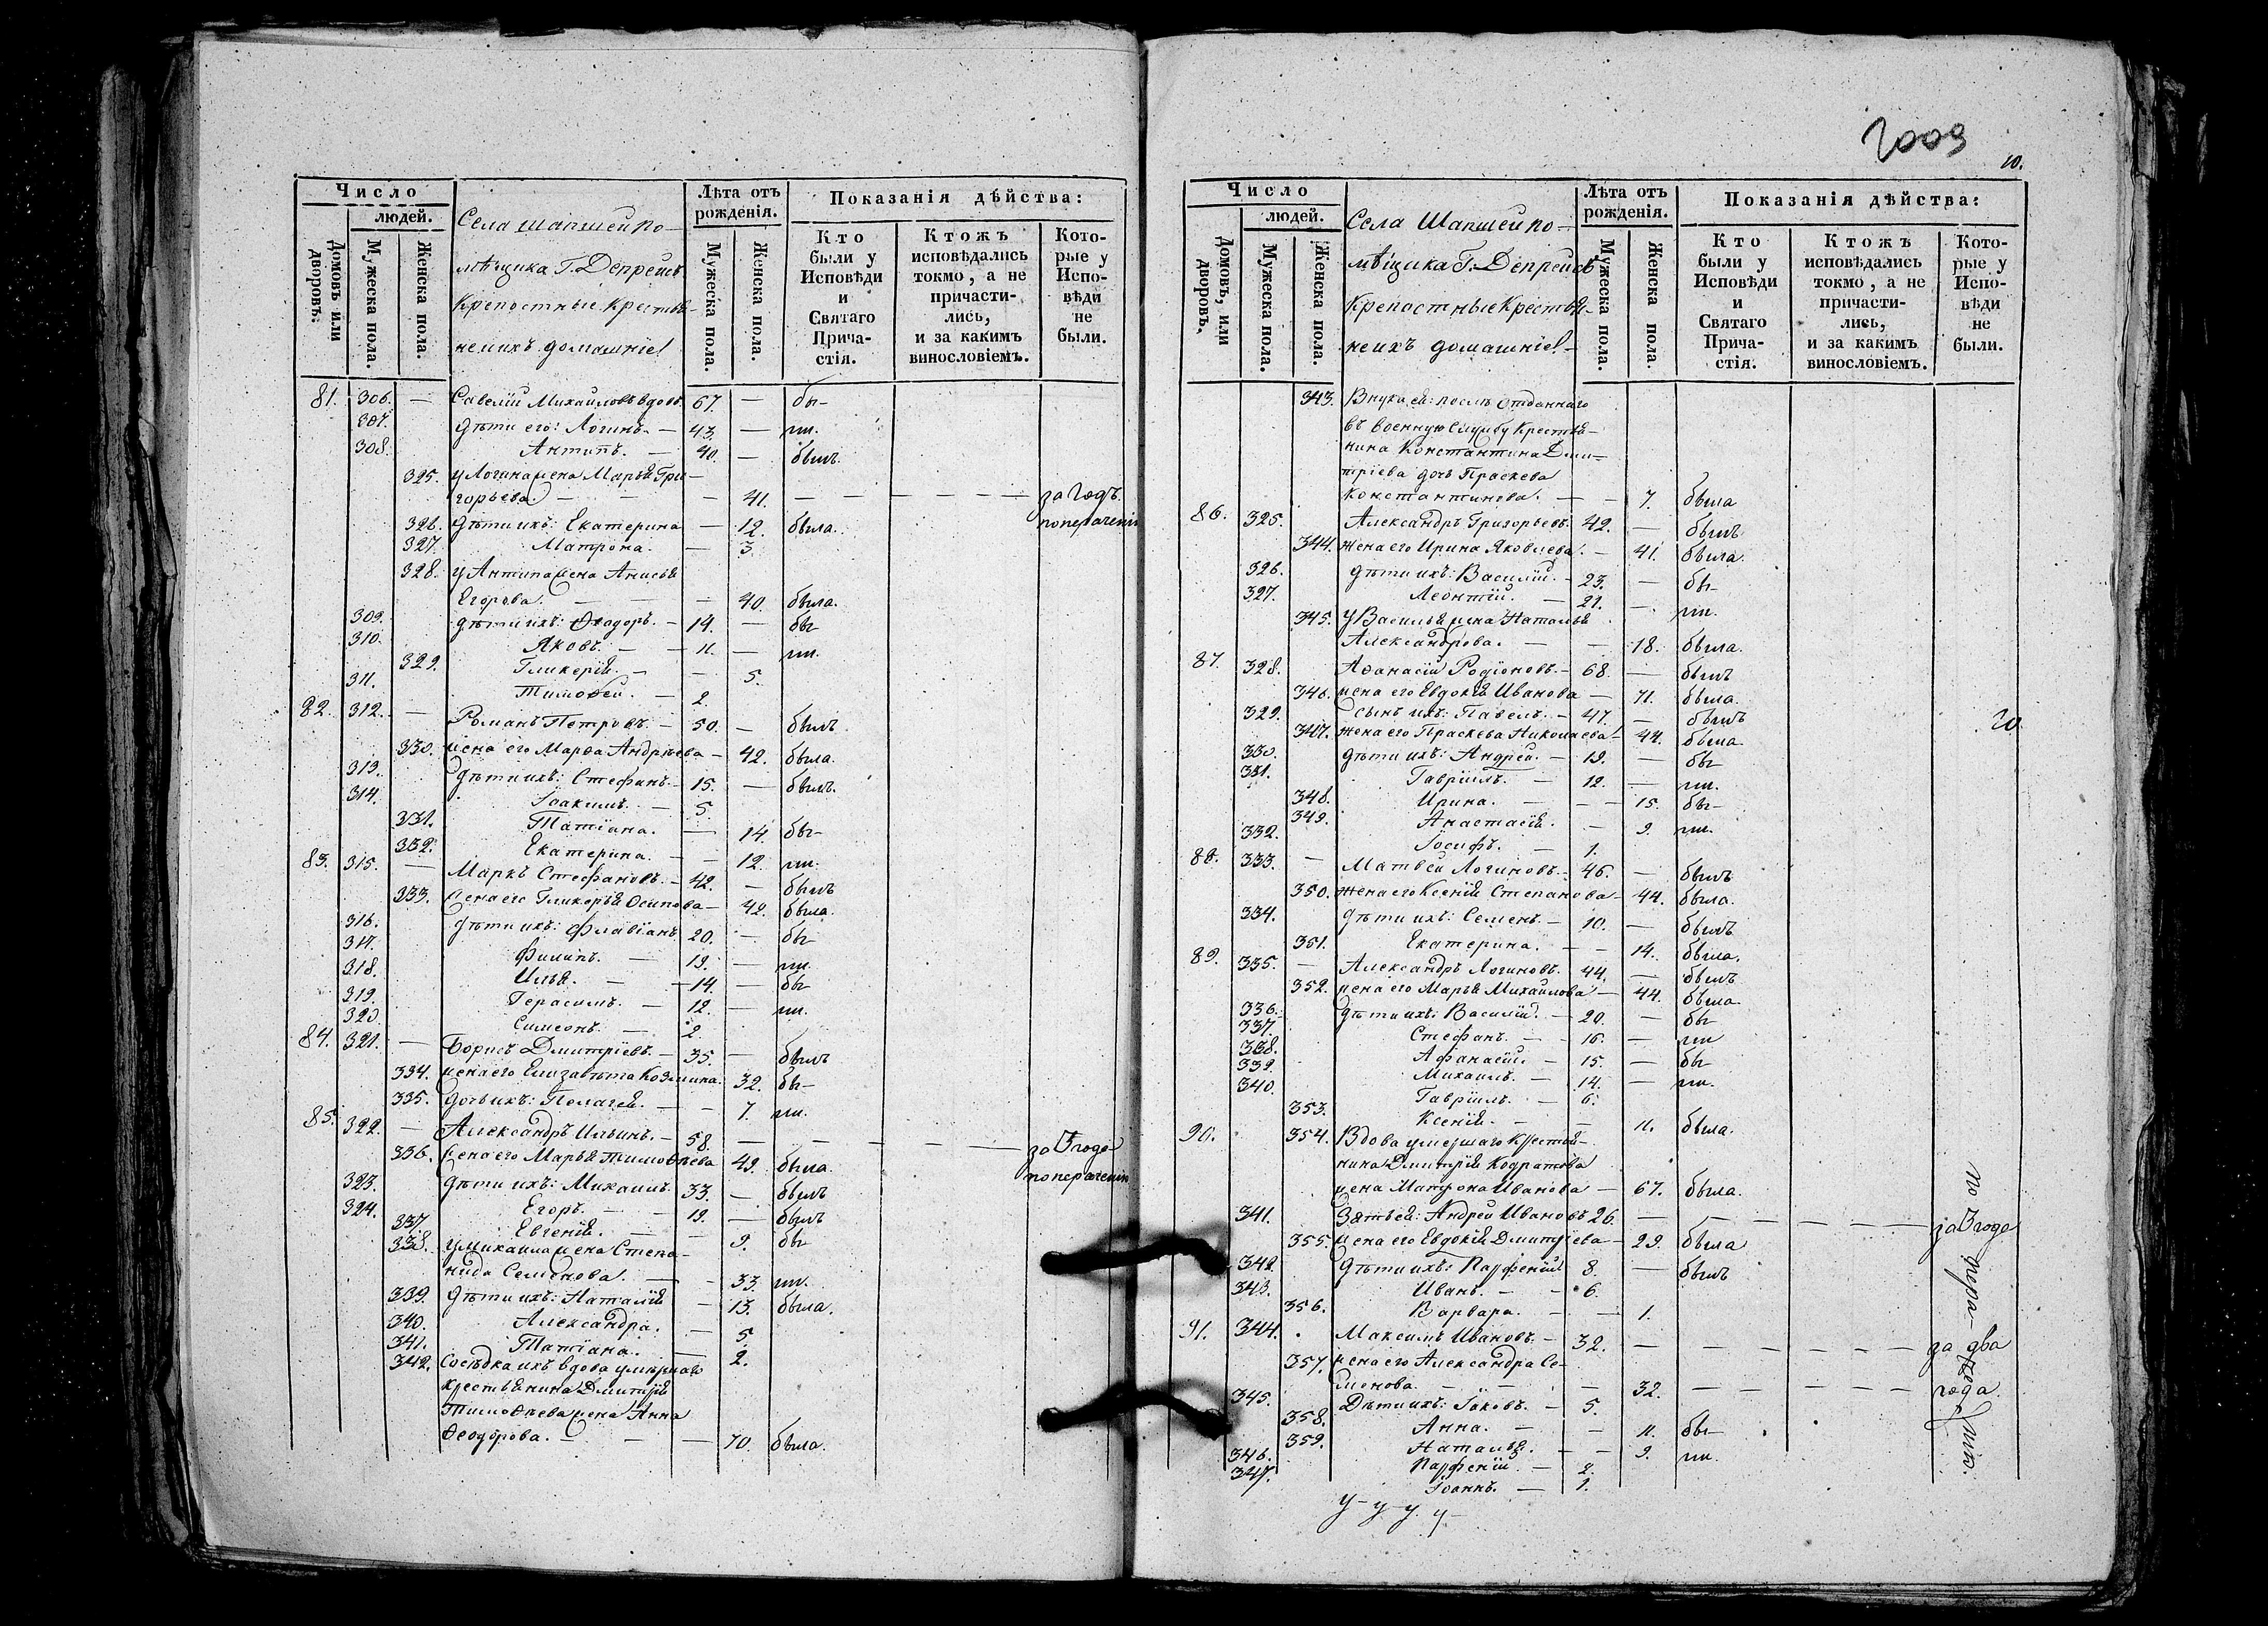 Число
людей.
Домовъ или дворовъ.
Мужеска пола.
Женска пола.
Села Шапшей по-
мѣщика Г. Депрейсъ
крепостные крестья-
не ихъ домашніе
Лѣта отъ
рожденія.
Мужеска пола.
Женска пола.
Показанія дѣйства:
Кто
были у
Исповѣди
и
Святаго
Прича-
стія.
Ктожъ
исповѣдались
токмо, а не
причасти-
лись,
и за какимъ
винословіемъ.
Кото-
рые у
Испо-
вѣди
не
были.
81. 306. — Савелій Михайловъ вдовъ. 67. — бы-
307. дѣти его: Логинъ. — 43. — ли.
308. Антипъ. — 40. — былъ.
325. у Логина жена Марья Гри-
горьева — — 41. — — — — — за годъ.
326. дѣти ихъ: Екатерина — 12. была. по нерачению
327. Матрона. — 3.
328. у Антипа жена Анисья
Егорова. — — 40. была.
309. дѣти ихъ: Ѳеадоръ. — 14. — бы-
310. Яковъ. — 11. — ли.
329. Гликерія. — — 5.
311. Тимоѳей. — 2.
82. 312. — Романъ Петровъ. — 50. — былъ
330. жена его Марѳа Андрѣева — 42. была.
313. дѣти ихъ: Стефанъ. — 15. — былъ.
314. Іоакимъ. — 5.
331. Татіана. — 14. бы-
332. Екатерина. — — 12. ли.
83. 315. — Маркъ Стефановъ. — 42. — былъ
333. жена его Гликерья Осипова — 42. была.
316. дѣти ихъ: Флавіанъ 20. — бы-
317. Филипъ. — 19. — ли.
318. Илья. — 14. — бы-
319. Герасимъ. — 12. — ли.
320. Симеонъ. — 2.
84. 321. — Борисъ Дмитріевъ. — 35. — былъ
334. жена его Елизавѣта Козмина. 32. бы-
335. дочь ихъ: Пелагея. — — 7. ли.
85. 322. — Александръ Ильинъ. — 58. — — — — — за 3 года
336. жена его Марья Тимоѳѣева 49. была. по нерачению
323. дѣти ихъ: Михаилъ. 33. — былъ
324. Егоръ. — 19. — былъ
337. Евгенія. — — 9. бы-
338. у Михаила жена Степа-
нида Семенова. — — 33. ли.
339. дѣти ихъ: Наталія — 13. была.
340. Александра. — 5.
341. Татіана. — 2.
342. Сосѣдка ихъ вдова умершаго
крестьянина Дмитрія
Тимоѳѣева жена Анна
Ѳеодорова. — — — 70. была.
2009
10.
Число
людей.
Домовъ, или дворовъ,
Мужеска пола.
Женска пола.
Села Шапшей по-
мѣщика Г. Депрейсъ
крепостные крестья-
не ихъ домашніе —
Лѣта отъ
рожденія.
Мужеска пола.
Женска пола.
Показанія дѣйства:
Кто
были у
Исповѣди
и
Святаго
Прича-
стія.
Ктожъ
исповѣдались
токмо, а не
причасти-
лись,
и за какимъ
винословіемъ.
Кото-
рые у
Испо-
вѣди
не
были.
343. Внука ей: послѣ отданнаго
въ военную службу крестья-
нина Константина Дми-
тріева дочь Праскева
Константинова. — — 7. была
86. 325. Александръ Григорьевъ. 42. — былъ
344. жена его Ирина Яковлева. — 41. была.
326. дѣти ихъ: Василій. — 23. — бы-
327. Леонтій. — 21. — ли.
345. у Василья жена Наталья
Александрова. — — 18. была.
87. 328. Аѳанасій Родіоновъ. — 68. — былъ
346. жена его Евдокія Иванова — 71. была.
329. сынъ ихъ: Павелъ. — 47. — былъ 20.
347. жена его Праскева Николаева — 44. была.
330. дѣти ихъ: Андрей. — 19. — бы-
331. Гавріилъ. — 12. — ли.
348. Ирина. — — 15. бы-
349. Анастасія. — 9. ли.
332. Іосифъ. — 1.
88. 333. — Матвей Логиновъ. — 46. — былъ
350. жена его Ксенія Степанова — 44. была.
334. дѣти ихъ: Семенъ. — 10. — былъ
351. Екатерина. — — 14. была.
89. 335. — Александръ Логиновъ. 44. — былъ
352. жена его Марья Михайлова — 44. была.
336. дѣти ихъ: Василій. — 20. — бы-
337. Стефанъ. — 16. — ли
338. Афанасій. — 15. — бы-
339. Михаилъ. — 14. — ли.
340. Гавріилъ. — 6.
353. Ксенія. — — 11. была.
90. 354. Вдова умершаго крестья-
нина Дмитрія Кодратова
жена Матрона Иванова — 67. была.
341. Зять ей: Андрей Ивановъ 26. — — — — — за 3 года
355. жена его Евдокія Дмитріева — 29. была
342. дѣти ихъ: Парфеній 8. — былъ
343. Иванъ. — 6.
356. Варвара. — — 1.
91. 344. Максимъ Ивановъ. — 32. — — — — — за два
357. жена его Александра Се-
менова. — — — 32. — — — — года.
345. Дѣти ихъ: Іаковъ. — 5.
358. Анна. — — 11. бы-
359. Наталья. — — 9. ли.
346. Парфеній. — 2.
347. Іоаннъ. — 1.